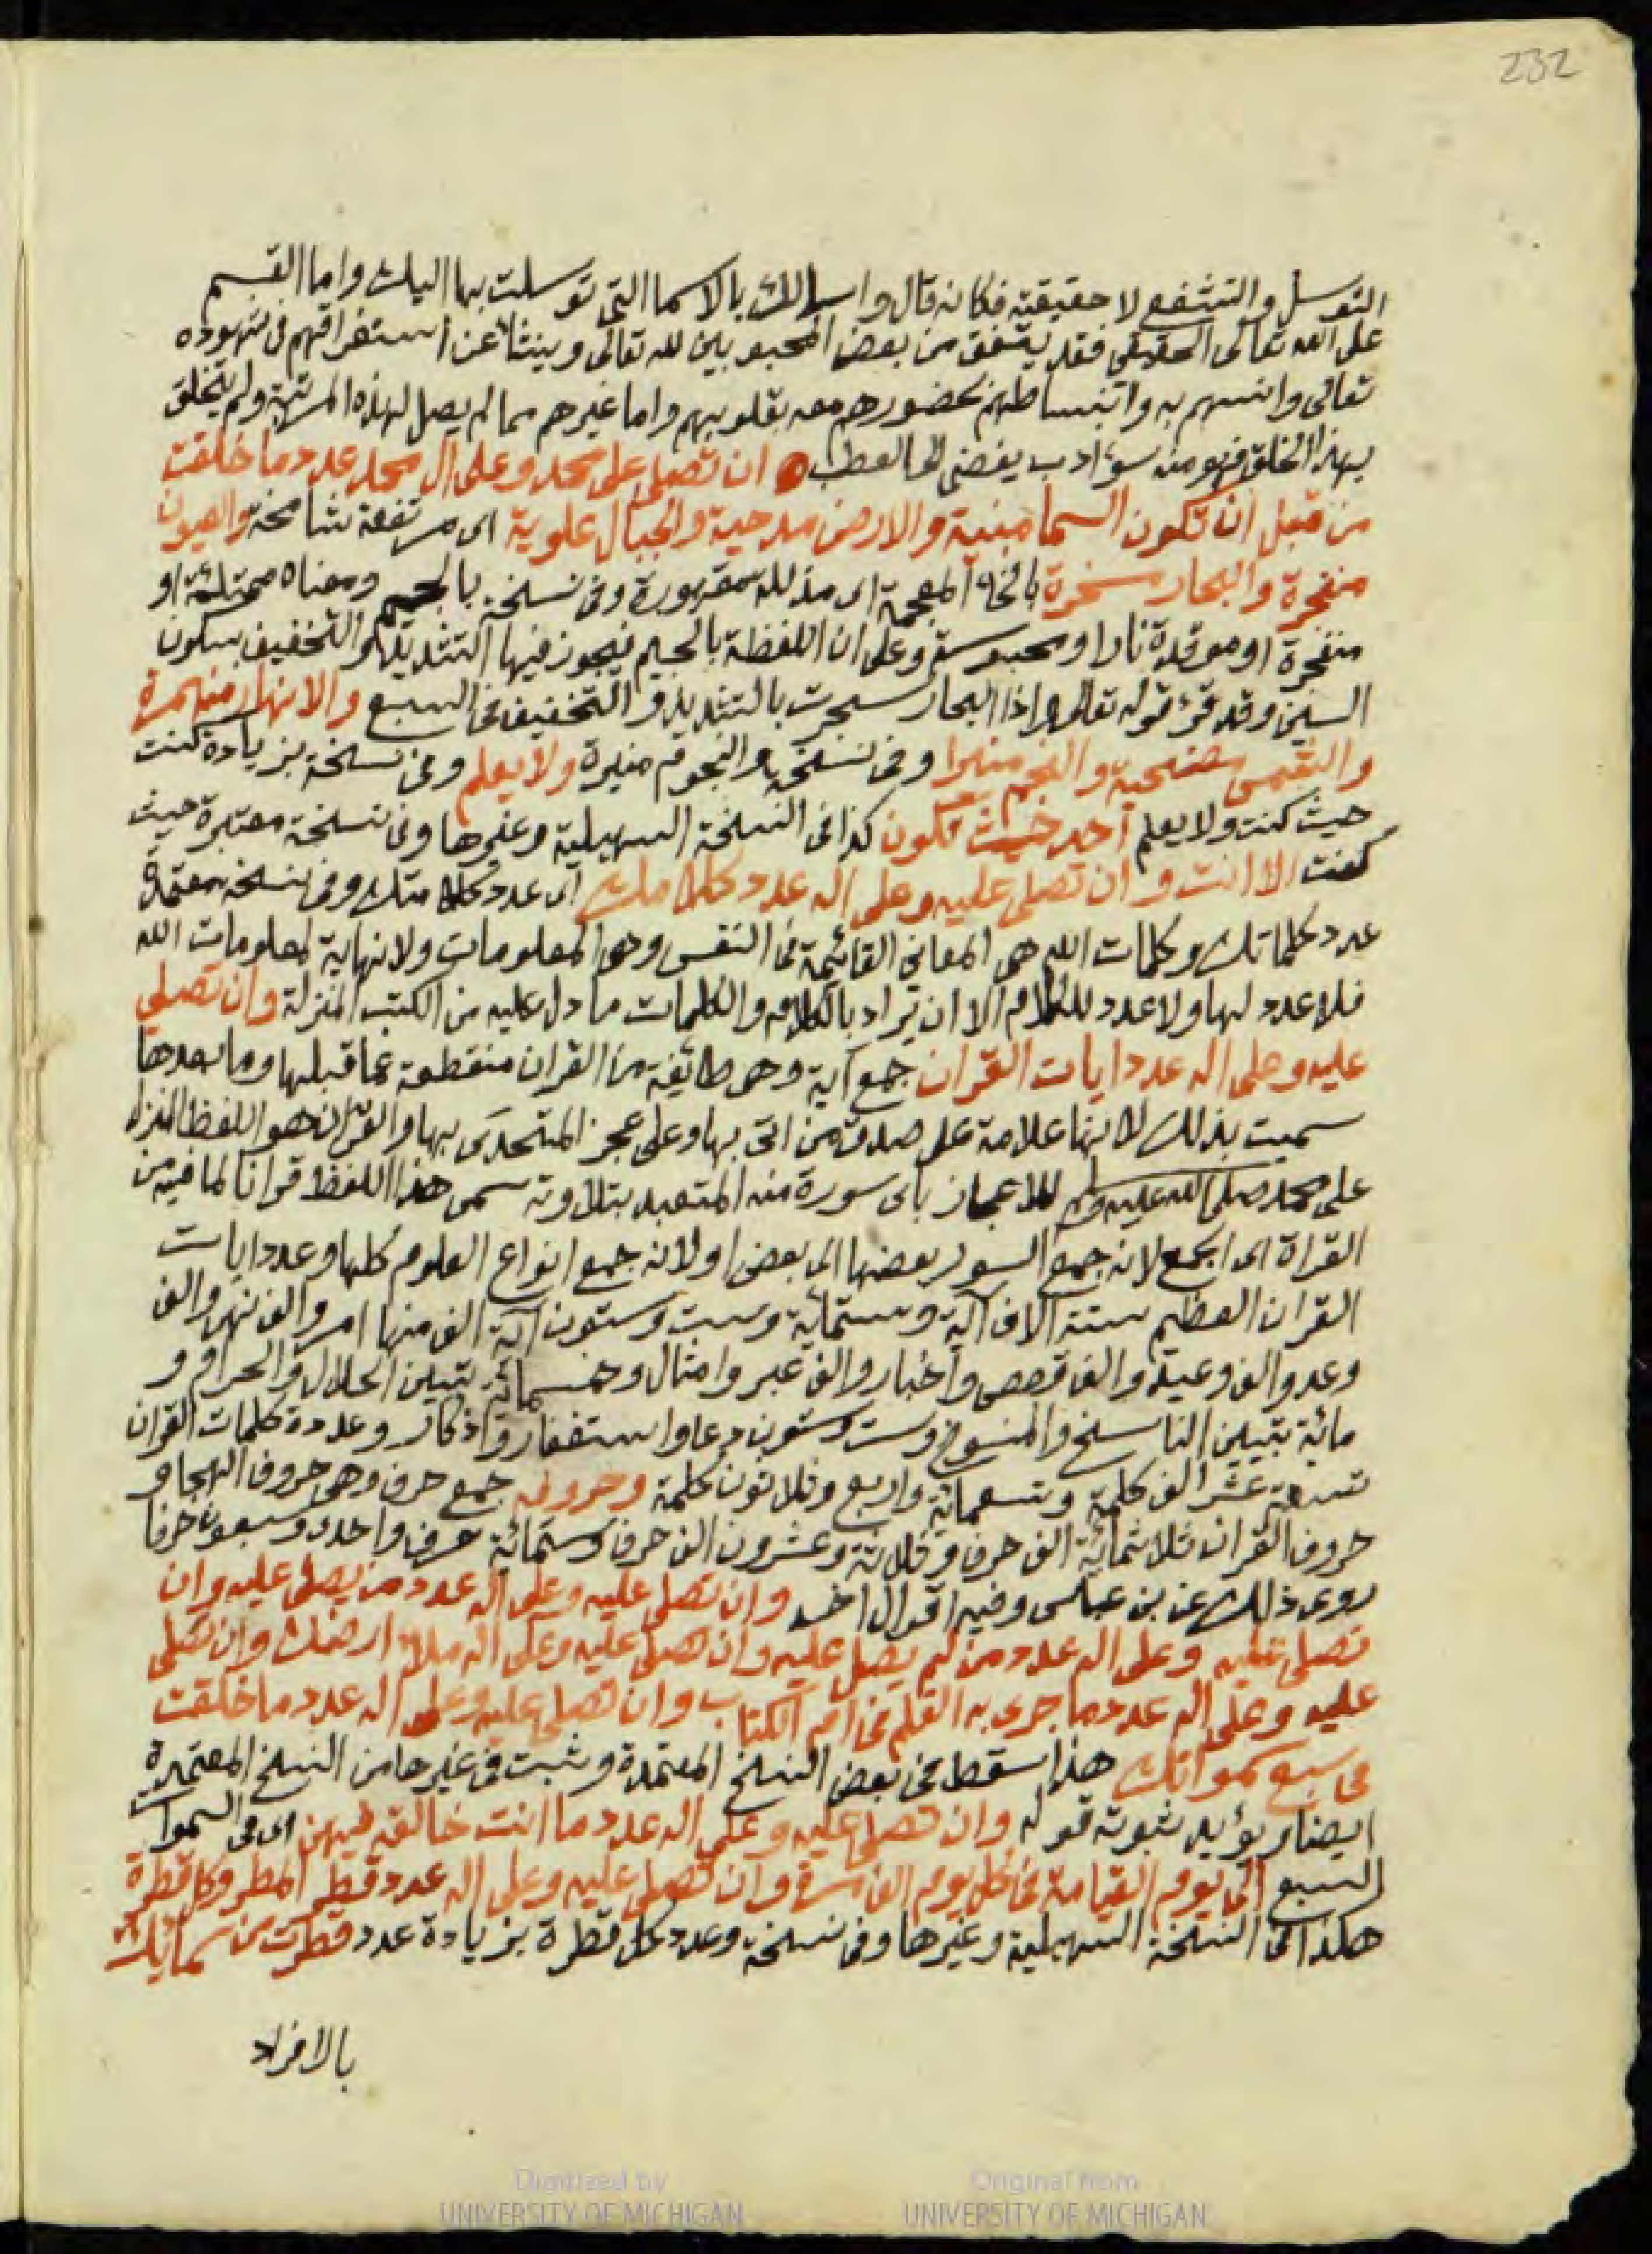 232
التوسل والتشفع لا حقيقته فكانه قال واسالك بالاسما التي توسلت بها اليك واما القسم
على الله تعالى الحقيقي فقد يتفق من بعض المحبوبين لله تعالى وينشأ عن استغراقهم فى شهوده
تعالى وانسهم به وانبساطهم بحضورهم معه بقلوبهم واما غيرهم مما لم يصل لهذه المرتبة ولم يتخلق
بهذا الخلق فهو منه سوء ادب يفضى الى العطب ان تصلى على محمد وعلى ال محمد عدد ما خلقت
من قبل ان تكون السما مبنية والارض مدحية والجبال علوية اى مرتفعة شامخة والعيون
منفجرة والبحار مسخرة بالخاء المعجمة اى مذللة مقهورة وفى نسخة بالجيم ومعناه ممتلئة او
منفجرة او موقدة نارا او محبوسة وعلى ان اللفظة بالجيم فيجوز فيها التشديد والتخفيف بسكون
السين وقد قرئ قوله تعالى واذا البحار سجرت بالتشديد والتخفيف فى السبع والانهار منهمرة
والشمس مضحية والنجم منيرا وفى نسخة والنجوم منيرة ولا يعلم وفى نسخة بزيادة كنت
حيث كنت ولا يعلم احد حيث تكون كذا فى النسخة السهيلية وغيرها وفى نسخة معتبرة حيث
كنت الا انت وان تصلى عليه وعلى اله عدد كلامك اى عدد كلماتك وفى نسخة معتمدة
عدد كلماتك وكلمات الله هى المعانى القائمة فى النفس وهى المعلومات ولا نهاية لمعلومات الله
فلا عدد لها ولا عدد للكلام الا ان يراد بالكلام والكلمات ما دل عليه من الكتب المنزلة وان تصلي
عليه وعلى اله عدد ايات القران جمع آية وهى طائفة من القران منقطعة عما قبلها وما بعدها
سميت بذلك لانها علامة على صدق من اتى بها وعلى عجز المتحدى بها والقران هو اللفظ المنزل
على محمد صلى الله عليه وسلم للاعجاز باى سورة منه المتعبد بتلاوته سمى هذا اللفظ قرانا لما فيه من
القراة اى الجمع لانه جمع السور بعضها الى بعض او لانه جمع انواع العلوم كلها وعدد ايات
القران العظيم ستة الاف آية وستمائة وست وستون آية الف منها امر والف نهى والف
وعد والف وعيد والف قصص واخبار والف عبر وامثال وخمسمائة تبيين الحلال والحرام و
مائة تبيين الناسخ والمنسوخ وست وستون دعا واستغفار واذكار وعددة كلمات القران
تسعة عشر الف كلمة وتسعمائة واربع وثلاثون كلمة وحروفه جمع حرف وهى حروف الهجا و
حروف القران ثلاثمائة الف حرف وثلاثة وعشرون الف حرف وستمائة حرف واحدى وسبعون حرفا
روى ذلك عن بن عباس وفيه اقوال اخر وان تصلى عليه وعلى اله عدد من يصلى عليه وان
تصلى عليه وعلى اله عدد من لم يصل عليه وان تصلى عليه وعلى اله ملاء ارضك وان تصلى
عليه وعلى اله عدد ما جرى به القلم فى ام الكتاب وان تصلى عليه وعلى اله عدد ما خلقت
فى سبع سمواتك هذا سقط فى بعض النسخ المعتمدة وثبت فى غيرها من النسخ المعتمدة
ايضا ويؤيد ثبوته قوله وان تصلى عليه وعلى اله عدد ما انت خالقه فيهن اى فى السموات
السبع الى يوم القيامة فى كل يوم الف مرة وان تصلى عليه وعلى اله عدد قطر المطر وكل قطرة
هكذا فى النسخة السهيلية وغيرها وفى نسخة وعدد كل قطرة بزيادة عدد قطرت من سمائك
بالافراد
Digitized by
UNIVERSITY OF MICHIGAN
Original from
UNIVERSITY OF MICHIGAN